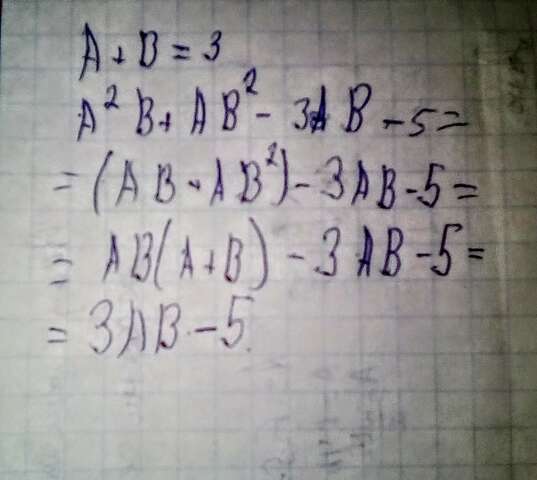 A + B = 3
A² B + AB² - 3AB - 5 =
= (AB + AB²) - 3AB - 5 =
= AB(A+B) - 3AB - 5 =
= 3AB - 5